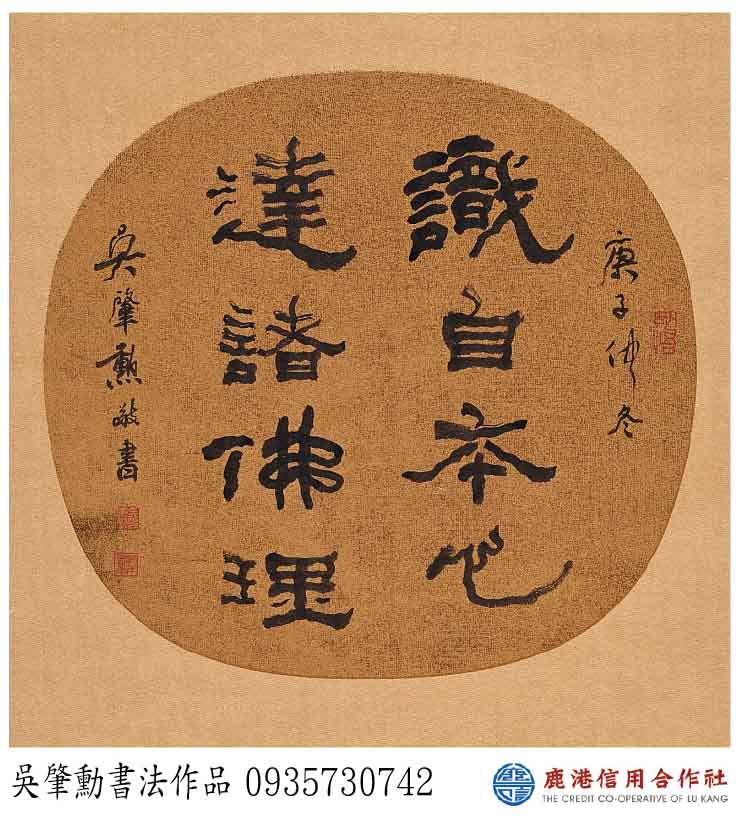 庚子仲冬
識自本心
達諸佛理
吳肇勲敬書
吳肇勳書法作品 0935730742
鹿港信用合作社
THE CREDIT CO-OPERATIVE OF LU KANG